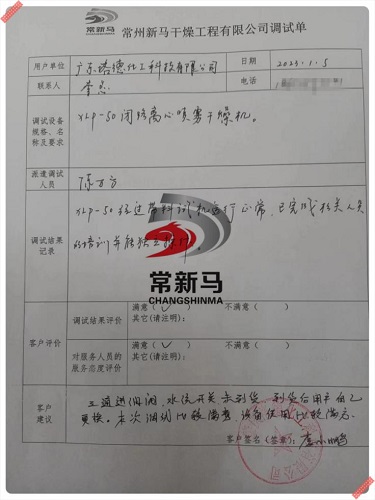 常新马 常州新马干燥工程有限公司调试单
用户单位 广东塔德化工科技有限公司 日期 2023.1.5
联系人 李总 电话
调试设备
规格、名
称及要求
XLP-50闭路离心喷雾干燥机。
派遣调试
人员
陈万方
XLP-50经过带料试机运行正常,已完成相关人员
的培训并能独立操作。
调试结果
记录
常新马
CHANGSHINMA
调试结果评价 满意(✓) 不满意( )
其它(请注明):
客户评价
对服务人员的
服务态度评价
满意(✓) 不满意( )
其它(请注明):
客户
建议
三通进料阀,水流开关未到货,到货后用户自己
更换。本次调训比较满意,设备使用比较满意。
客户签名(签章):